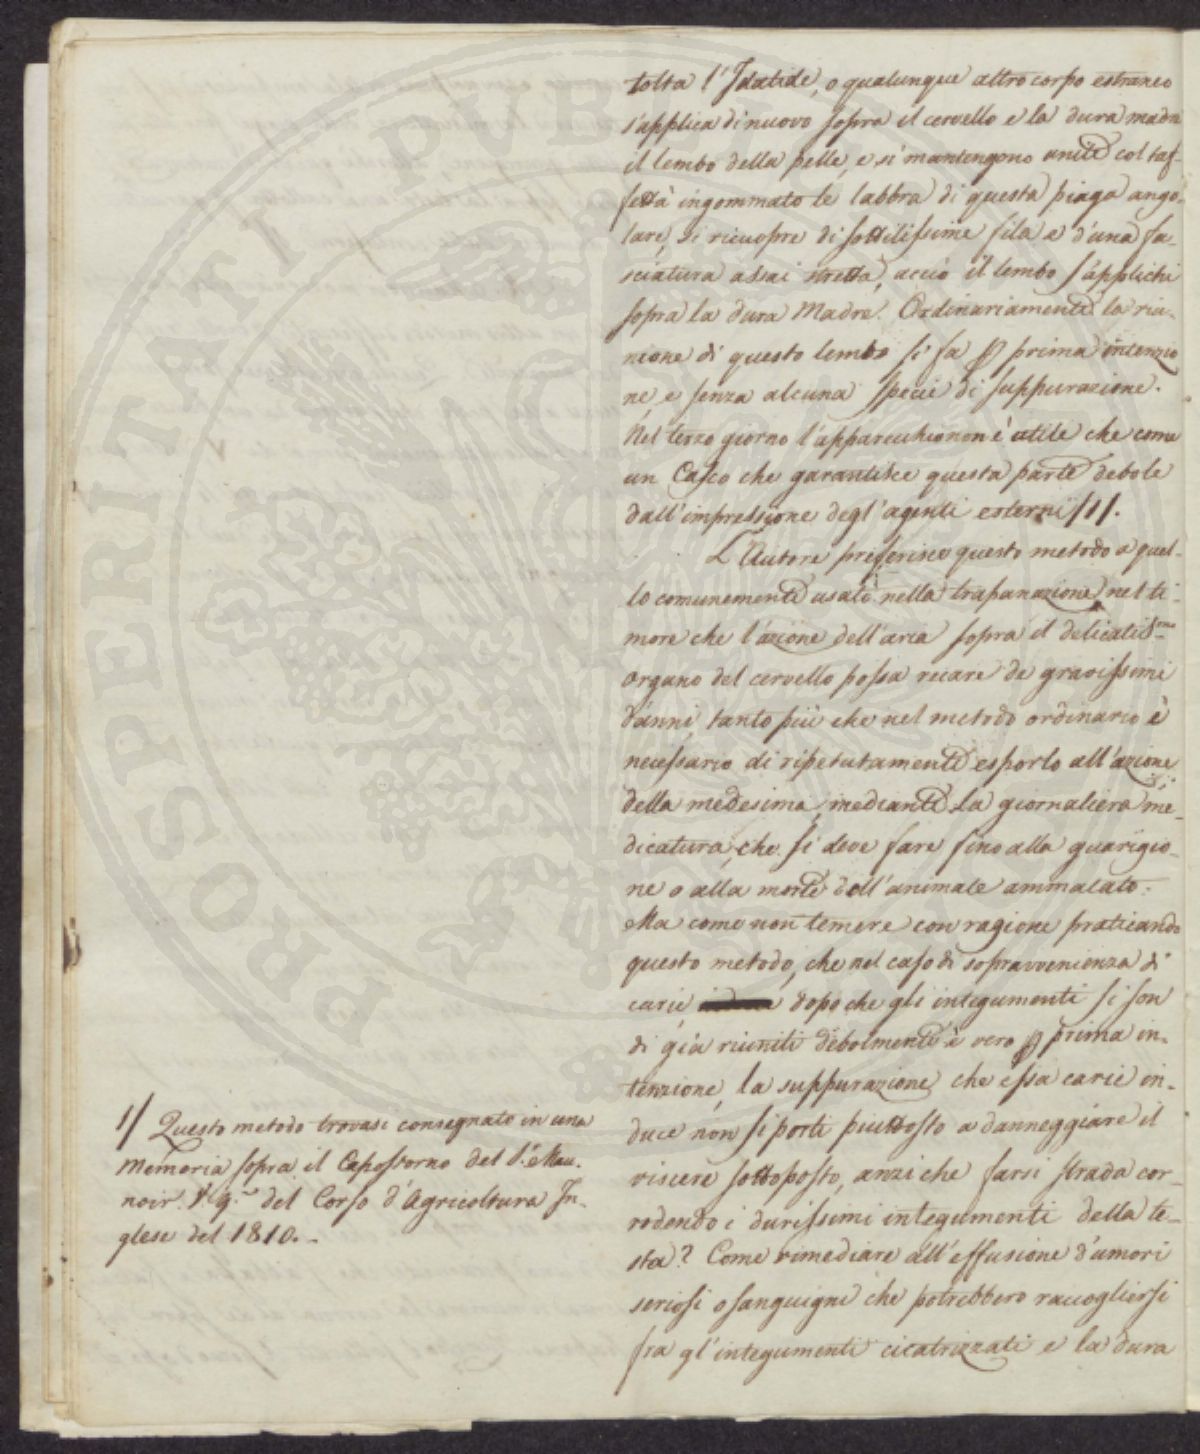 tolta l'Idatide, o qualunque altro corpo estraneo
s'applica di nuovo sopra il cervello e la dura madre
il lembo della pelle, e si mantengono unite col taf-
fettà ingommato le labbra di questa piaga ango-
lare, si ricuopre di sottilissime fila e d'una fa-
sciatura assai stretta, acciò il lembo s'applichi
sopra la dura Madre. Ordinariamente la riu-
nione di questo lembo si fa p prima intenzio
ne, e senza alcuna specie di suppurazione.
Nel terzo giorno l'apparecchio non è utile che come
un Casco che garantisce questa parte debole
dall'impressione degl'agenti esterni /1/.
L'Autore preferisce questo metodo a quel-
lo comunemente usato nella trapanazione nel ti-
more che l'azione dell'aria sopra il delicatiss.mo
organo del cervello possa recare de gravissimi
danni, tanto più che nel metodo ordinario è
necessario di ripetutamente esporlo all'azione
della medesima, mediante la giornaliera me-
dicatura, che si deve fare fino alla guarigio-
ne o alla morte dell'animale ammalato.
Ma come non temere con ragione praticando
questo metodo, che nel caso di sopravvenienza di
carie, dopo che gli integumenti si son
di già riuniti debolmente è vero p prima in-
tenzione, la suppurazione che essa carie in-
duce non si porti piuttosto a danneggiare il
viscere sottoposto, anzi che farsi strada cor-
rodendo i durissimi integumenti della te-
sta? Come rimediare all'effusione d'umori
seriosi o sanguigni che potrebbero raccogliersi
fra gl'integumenti cicatrizzati e la dura
1/ Questo metodo trovasi consegnato in una
Memoria sopra il Capostorno del S.r Mau-
noir. T. 9.° del Corso d'Agricoltura In-
glese del 1810.-
PROSPERITATI PUBLICAE